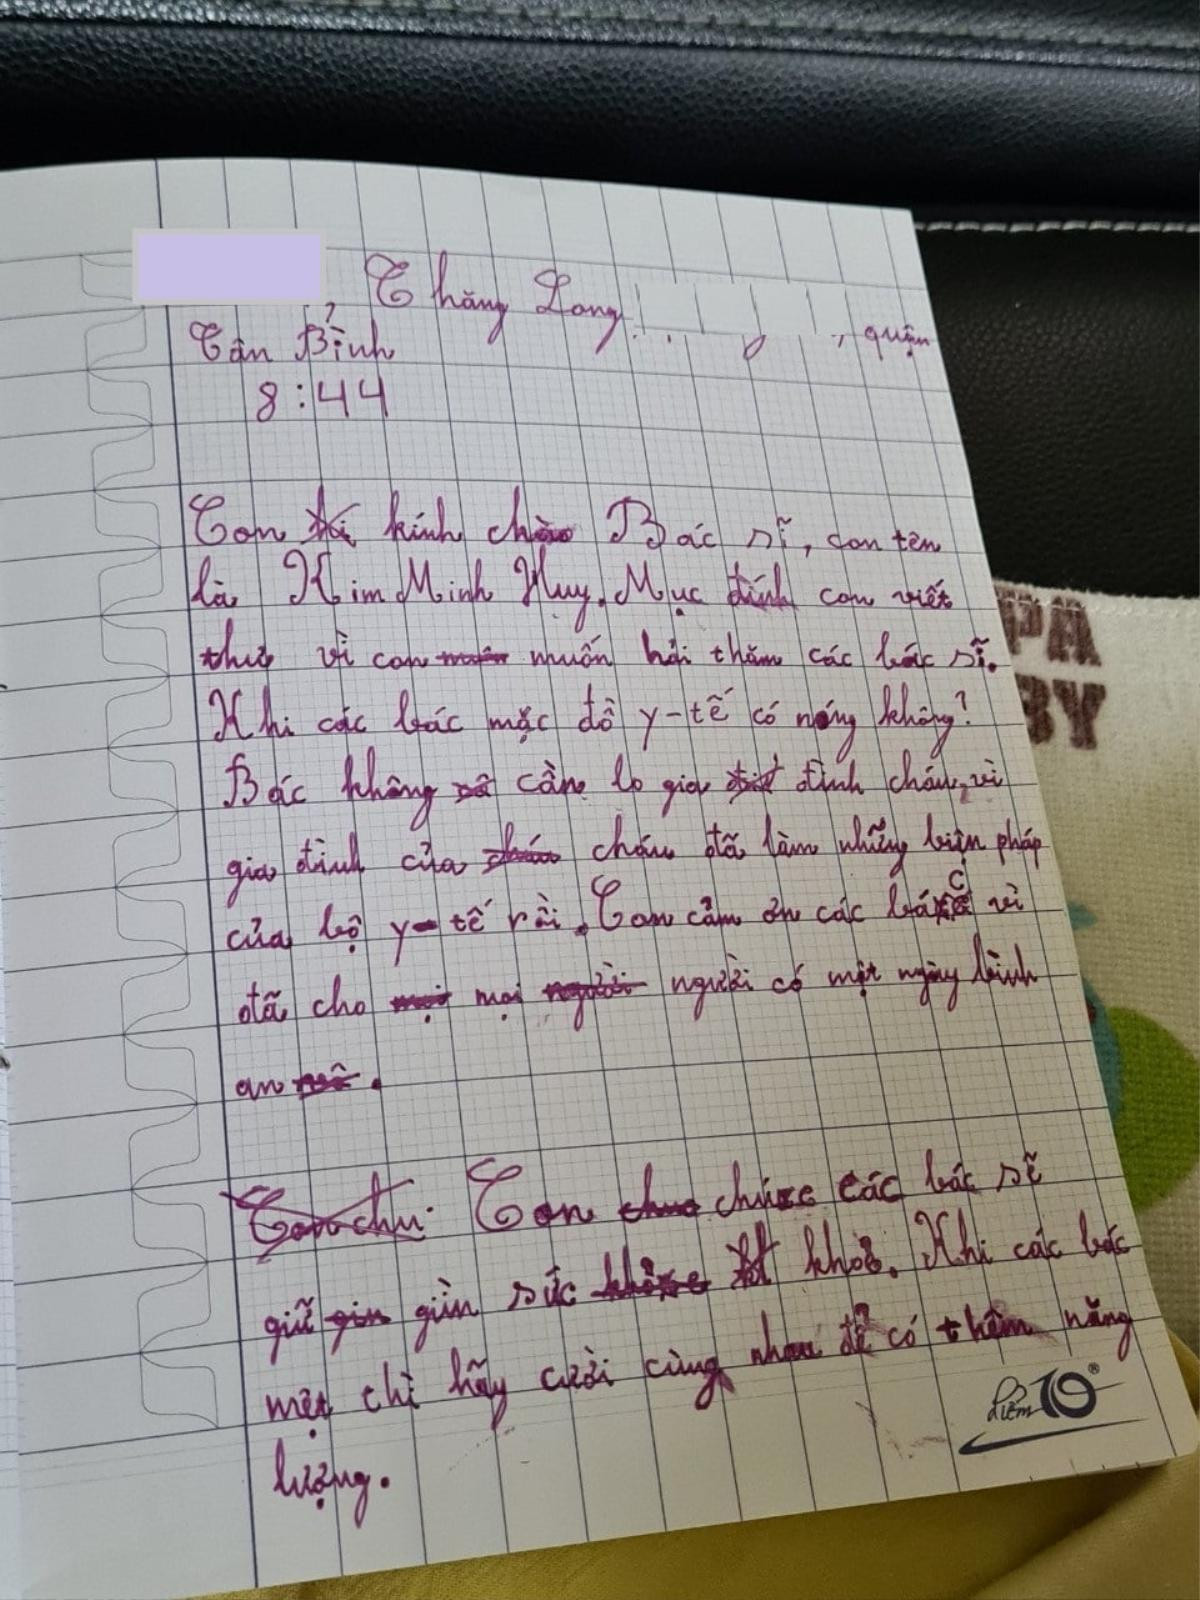 , Thăng Long, quận
Tân Bình
8:44
Con kính chào Bác sĩ, con tên
là Kim Minh Huy. Mục đính con viết
thư vì con muốn hỏi thăm các bác sĩ.
Khi các bác mặc đồ y-tế có nóng không?
Bác không cần lo gia đình cháu, vì
gia đình của cháu đã làm những biện pháp
của bộ y-tế rồi. Con cảm ơn các bác vì
đã cho mọi người có một ngày bình
an.
Con chúc các bác sĩ
giữ gìn sức khỏe. Khi các bác
mệt thì hãy cười cùng nhau để có thêm năng
lượng.
điểm 10®
PA
BY